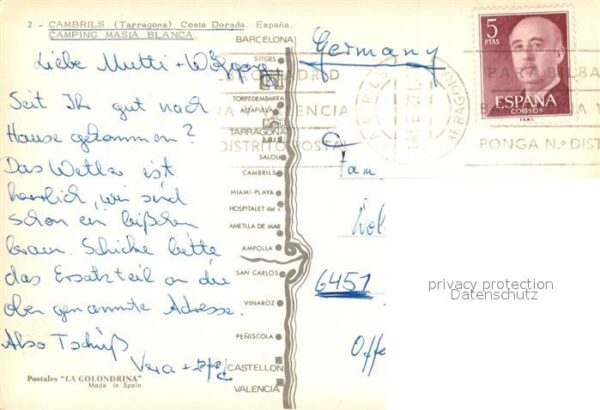 2 - CAMBRILS (Tarragona) Costa Dorada. España.
CAMPING MASIA BLANCA.
Liebe Mutti + Wolfgang
Seit Ihr gut nach
Hause gekommen?
Das Wetter ist
herrlich, wir sind
schon ein bißchen
braun. Schicke bitte
das Ersatzteil an die
oben genannte Adresse.
Also Tschüß
Vera +
Postales "LA GOLONDRINA"
Made in Spain
BARCELONA
SITGES
TORREDEMBARRA
ALTAFULLA
TARRAGONA
SALOU
CAMBRILS
MIAMI-PLAYA
HOSPITALET del I
AMETLLA DE MAR
AMPOLLA
SAN CARLOS
VINAROZ
PEÑISCOLA
CASTELLON
VALENCIA
Germany
5
PTAS
ESPAÑA
CORREOS
F.N.M.T.
DISTRITO POSTAL
PARA BILBA
PONGA N.º DIST
Fam
6451
Offe
privacy protection
Datenschutz